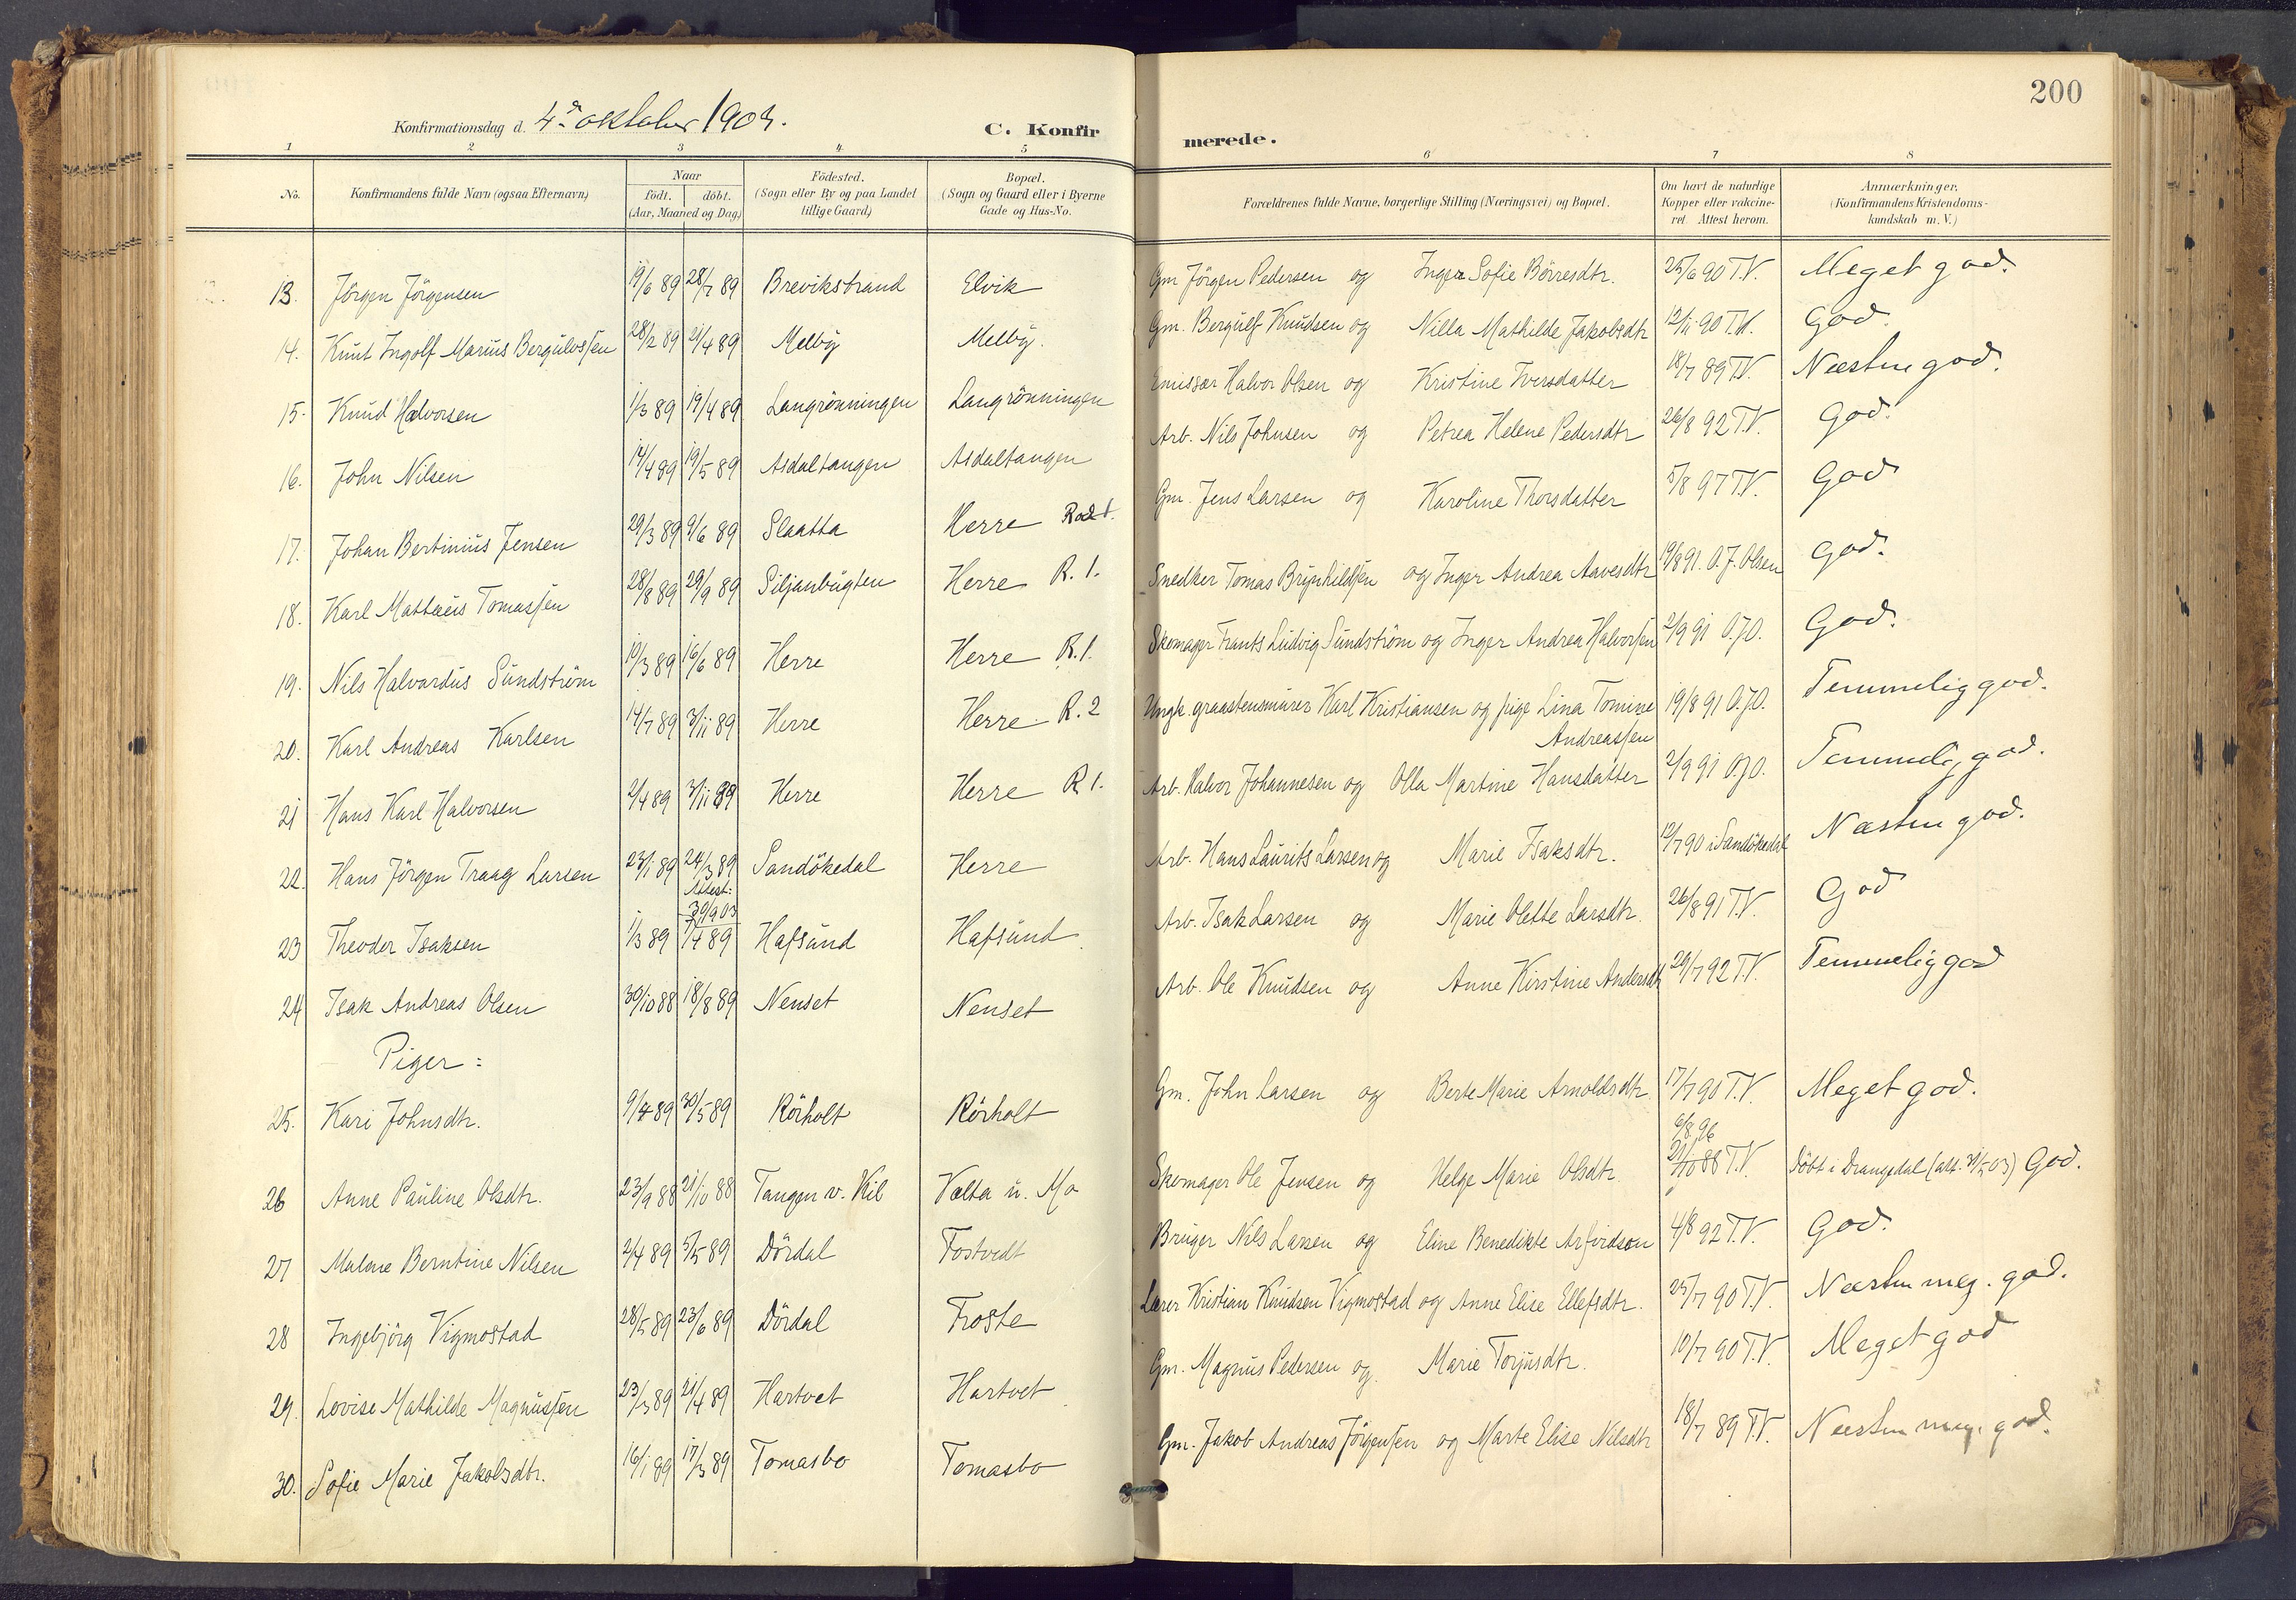 200
Konfirmationsdag d. 4de oktober 1903.
C. Konfirmerede.
1 2 3 4 5 6 7 8
No. | Konfirmandens fulde Navn (ogsaa Efternavn) | Naar födt. döbt. (Aar, Maaned og Dag) | Födested. (Sogn eller By og paa Landet tillige Gaard) | Bopæl. (Sogn og Gaard eller i Byerne Gade og Hus-No. | Forældrenes fulde Navne, borgerlige Stilling (Næringsvei) og Bopæl. | Om havt de naturlige Kopper eller vakcineret. Attest herom. | Anmærkninger. (Konfirmandens Kristendomskundskab m. V.)
13. Jörgen Jörgensen 19/6 89 28/7 89 Brevikstrand Elvik Gm Jörgen Pedersen og Inger Sofie Börresdtr. 25/6 90 T.V. Meget god.
14. Knut Ingolf Marius Bergulvssen 28/2 89 21/4 89 Melby Melby. Gm. Bergulf Knudsen og Nilla Mathilde Jakobsdtr 12/11 90 T.V. God.
15. Knud Halvorsen 1/3 89 19/4 89 Langrönningen Langrönningen Emissær Halvor Olsen og Kristine Iversdatter 18/7 89 T.V. Næsten god.
16. John Nilsen 14/4 89 19/5 89 Asdaltangen Asdaltangen Arb. Nils Johnsen og Petrea Helene Pedersdtr 26/8 92 T.V. God.
17. Johan Bertinius Jensen 29/3 89 9/6 89 Slaatta Herre Rod 1. Gm. Jens Larsen og Karoline Thorsdatter 5/8 97 T.V. God
18. Karl Mattæus Tomassen 28/8 89 29/9 89 Siljanbugten Herre R. 1. Snedker Tomas Brynhildsen og Inger Andrea Aavesdtr 19/8 91. O.J. Olsen God.
19. Nils Halvardus Sundström 10/3 89 16/6 89 Herre Herre R. 1. Skomager Frants Ludvig Sundström og Inger Andrea Halvorsen 2/9 91 O.J.O. God.
20. Karl Andreas Karlsen 14/7 89 3/11 89 Herre Herre R. 2 Ungk. graastensmurer Karl Kristiansen og pige Lina Tomine Andreassen 19/8 91 O.J.O. Temmelig god.
21 Hans Karl Halvorsen 2/4 89 3/11 89 Herre Herre R 1. Arb. Halvor Johannesen og Olla Martine Hansdatter 2/9 91 O.J.O. Temmelig god.
22. Hans Jörgen Traag Larsen 23/1 89 24/3 89 Attest: 30/9 03 Sandökedal Herre Arb. Hans Laurits Larsen og Marie Isaksdtr. 12/7 90 i Sandökedal Næsten god.
23 Theodor Isaksen 1/3 89 7/4 89 Hafsund Hafsund Arb. Isak Larsen og Marie Olette Larsdtr. 26/8 91 T.V. God
24 Isak Andreas Olsen 30/10 88 18/8 89 Nenset Nenset Arb. Ole Knudsen og Anne Kirstine Andersdtr 29/7 92 T.V. Temmelig god
Piger:
25. Kari Johnsdtr. 9/4 89 30/5 89 Rörholt Rörholt Gm. John Larsen og Berte Marie Arnoldsdtr 17/7 90 T.V. Meget god.
26 Anne Pauline Olsdtr. 23/9 88 21/10 88 Tangen v. Kil Valta u. Mo Skomager Ole Jensen og Helge Marie Olsdtr. 6/8 96 21/10 88 T.V. Döbt i Drangedal (att. 31/5 03) God.
27 Malene Berntine Nilsen 2/4 89 5/5 89 Dördal Fostvedt Bruger Nils Larsen og Eline Benedikte Arfvidson 4/8 92 T.V. God.
28 Ingebjörg Vigmostad 28/5 89 23/6 89 Dördal Froste Lærer Kristian Knudsen Vigmostad og Anne Elise Ellefsdtr. 25/7 90 T.V. Næsten meg. god.
29. Lovise Mathilde Magnussen 23/3 89 21/4 89 Hartvet Hartvet Gm. Magnus Pedersen og Marie Torjusdtr. 10/7 90 T.V. Meget god
30. Sofie Marie Jakobsdtr. 16/1 89 17/3 89 Tomasbo Tomasbo Gm. Jakob Andreas Jörgensen og Marte Elise Nilsdtr 18/7 89 T.V. Næsten meg. god.